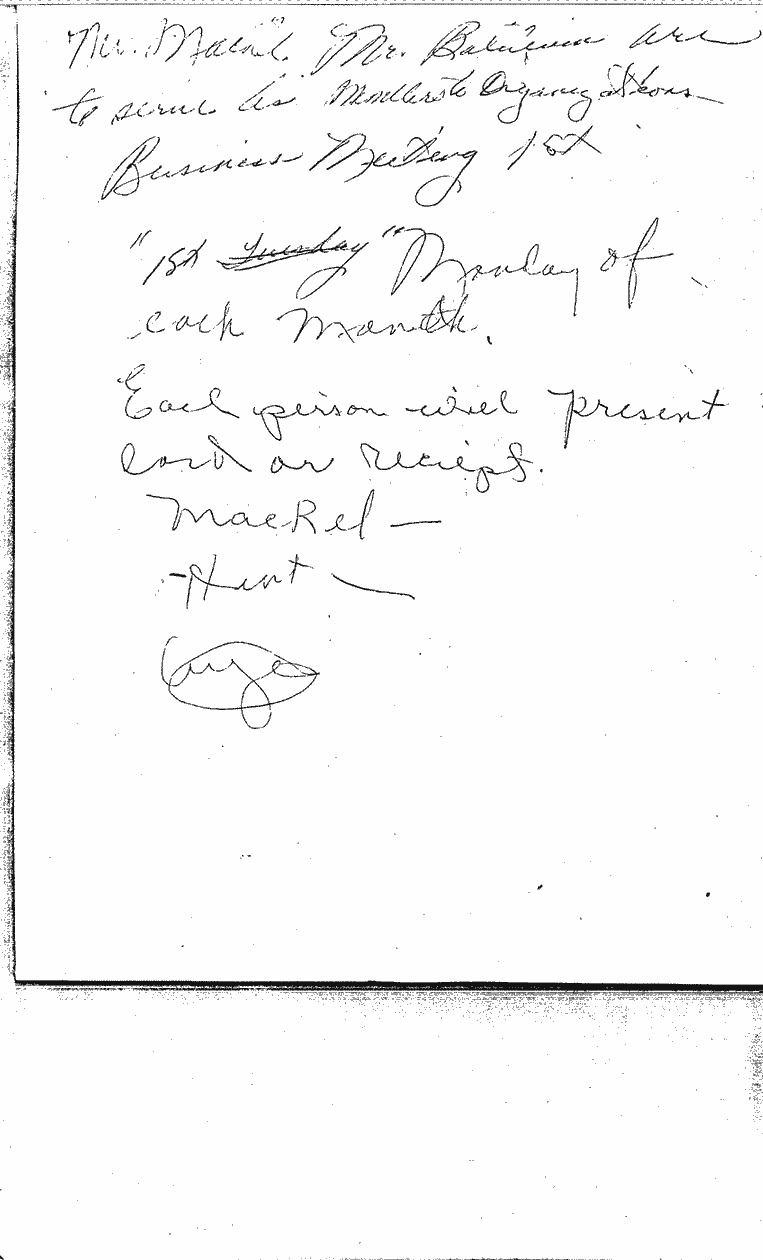 Mr. Mackel. Mr. are
to serve as Organizations
Business Meeting 1st
"1st Tuesday" Monday of
each Month.
Each person will present
card or reciept.
Mackel —
Hunt —